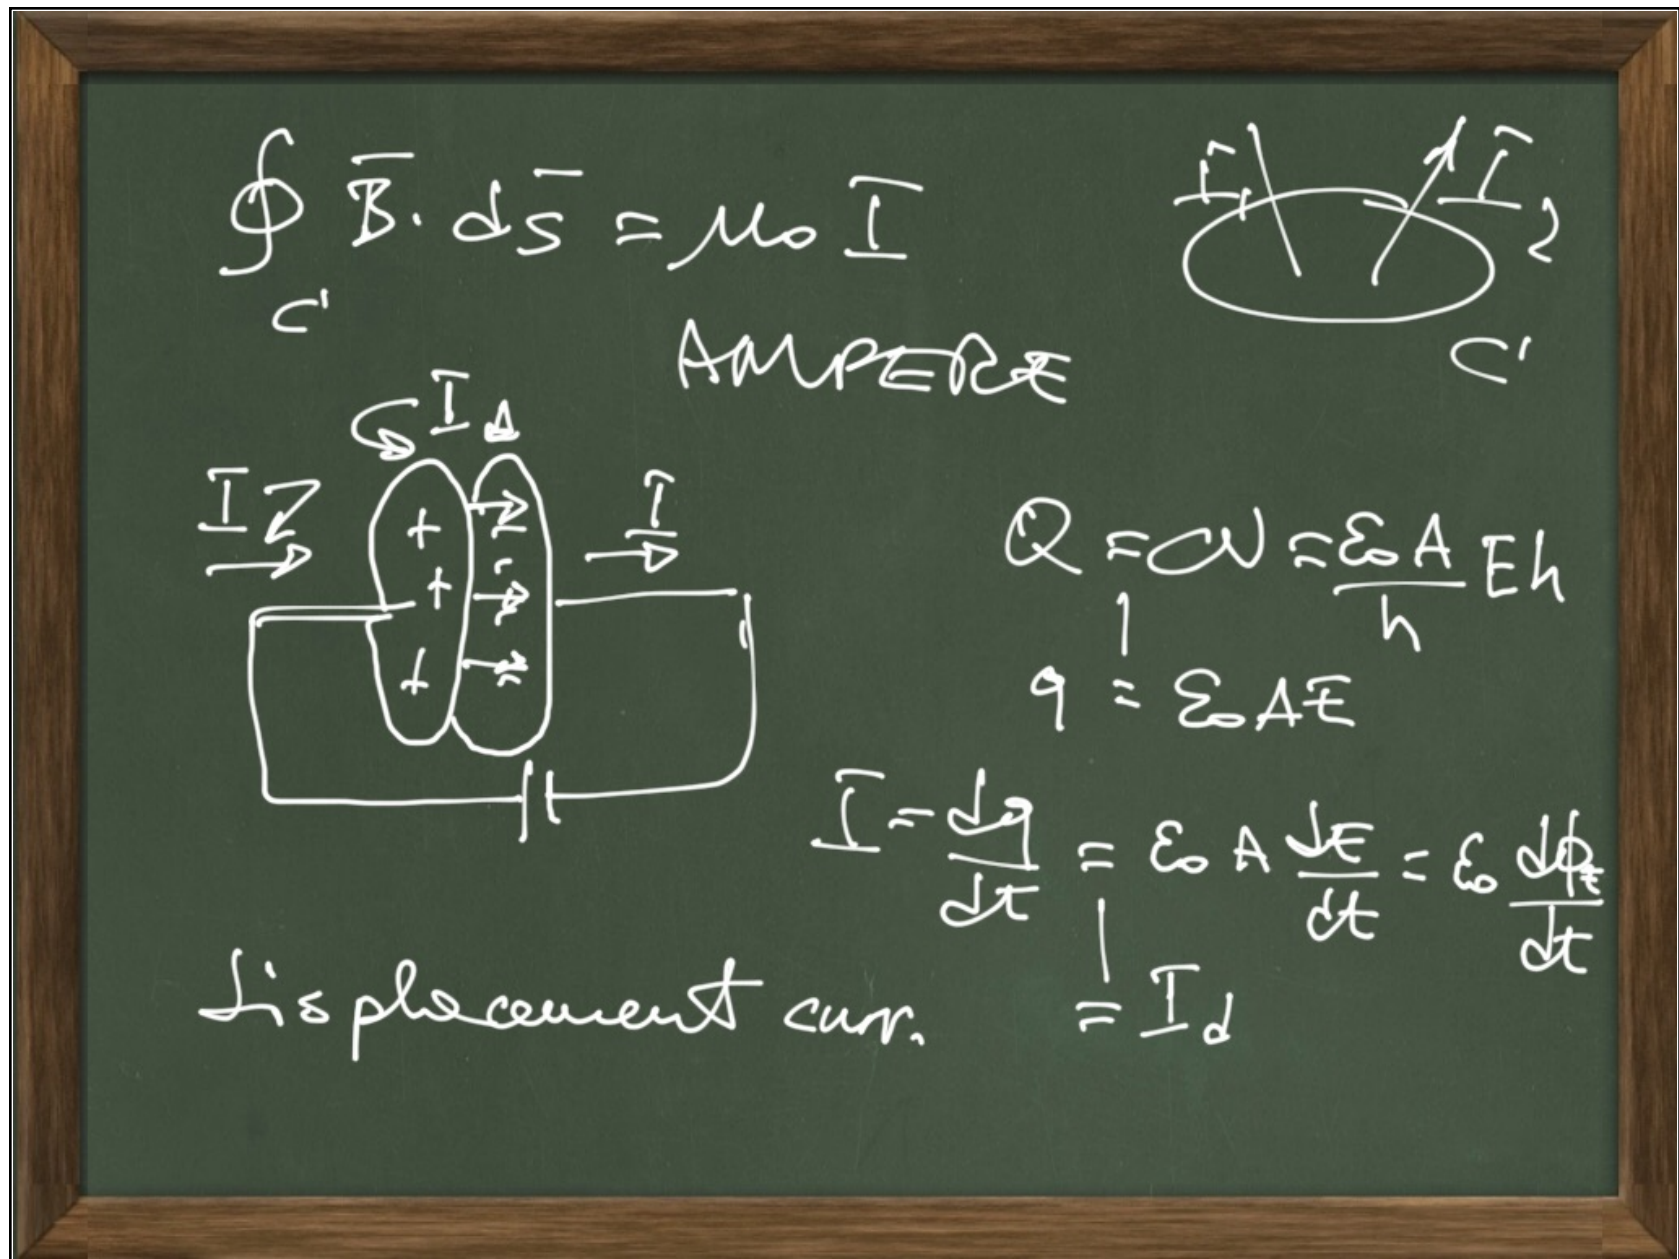 ∮ B̅ · ds̅ = μ₀ I
C'
I₁ I₂
C'
AMPERE
I d
I
+ + +
I
Q = CV = ε₀A/h Eh
q = ε₀AE
I = dq/dt = ε₀ A dE/dt = ε₀ dϕ_E/dt
= I_d
Displacement curr.